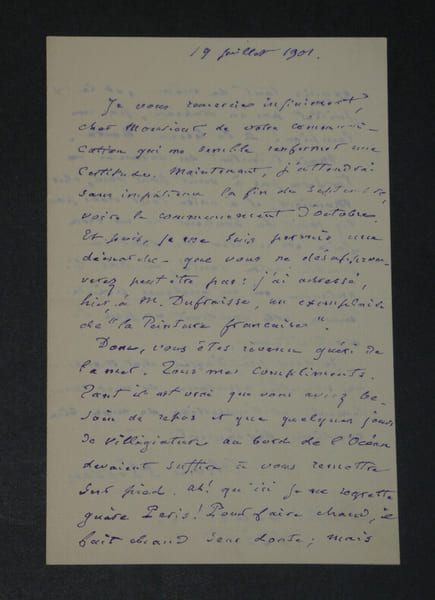 19 juillet 1901.
Je vous remercie infiniment,
cher Monsieur, de votre communi-
cation qui me semble renfermer une
certitude. Maintenant, j'attendrai
sans impatience la fin de septembre,
voire le commencement d'octobre.
Et puis, je me suis permis une
démarche - que vous ne désapprou-
verez peut être pas : j'ai adressé,
hier, à M. Dufraisse, un exemplaire
de "la Peinture française".
Donc, vous êtes revenu guéri de
la mer. Tous mes compliments.
Tant il est vrai que vous aviez be-
soin de repos et que quelques jours
de villégiature au bord de l'Océan
devaient suffire à vous remettre
sur pied. Ah! qu'ici je ne regrette
guère Paris! Pour faire chaud, il
fait chaud sans doute; mais